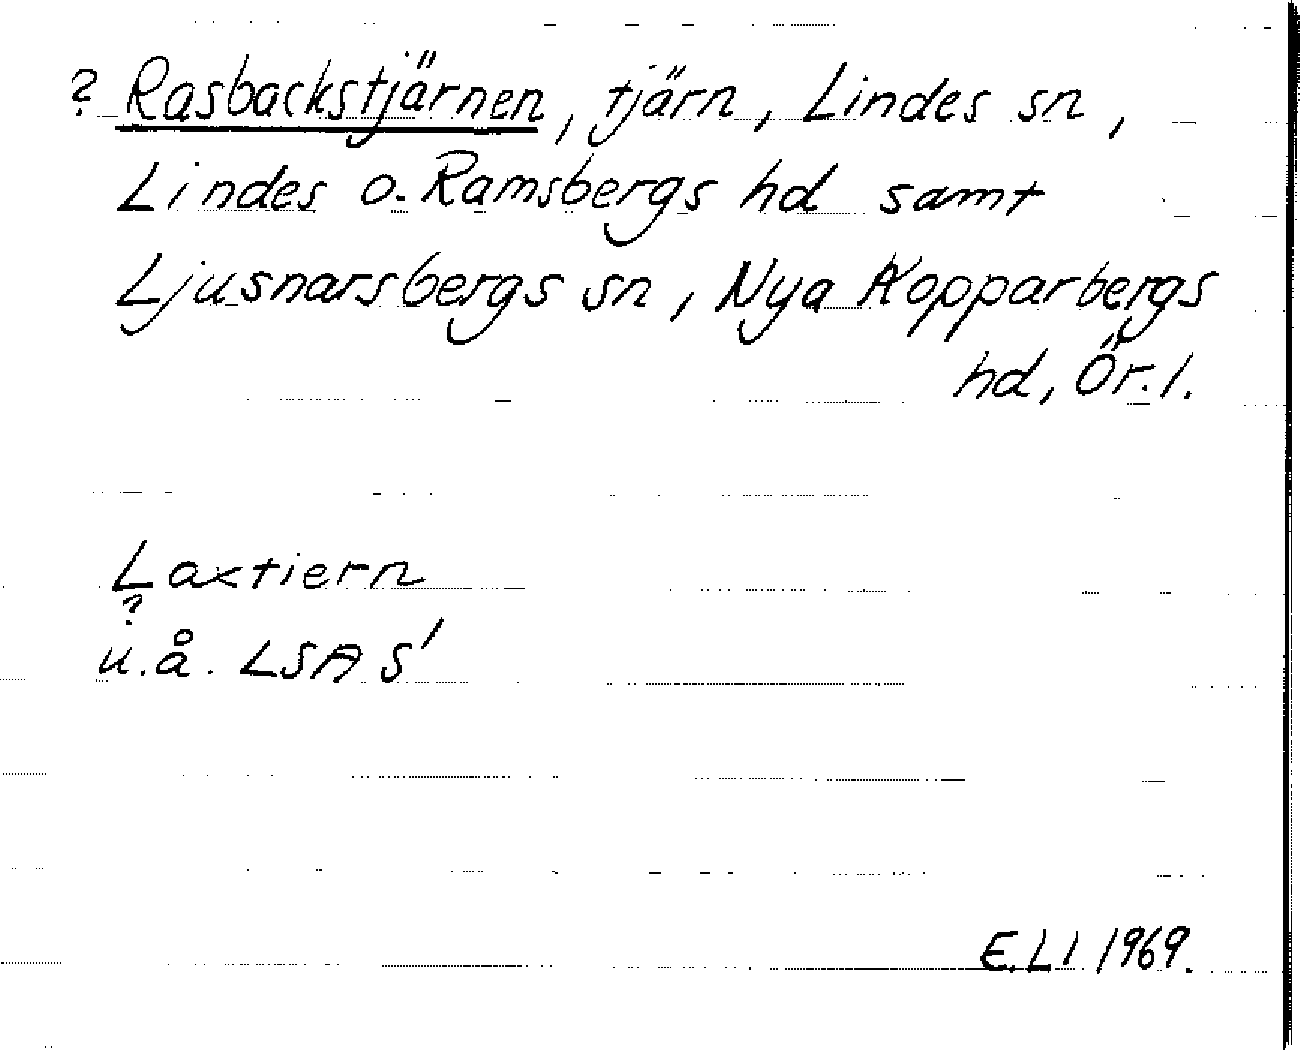 ? Rasbackstjärnen, tjärn, Lindes sn,
Lindes o. Ramsbergs hd samt
Ljusnarsbergs sn, Nya Kopparbergs
hd, Ör. l.
Laxtiern
?
u.å. LSA S1
E.LI 1969.